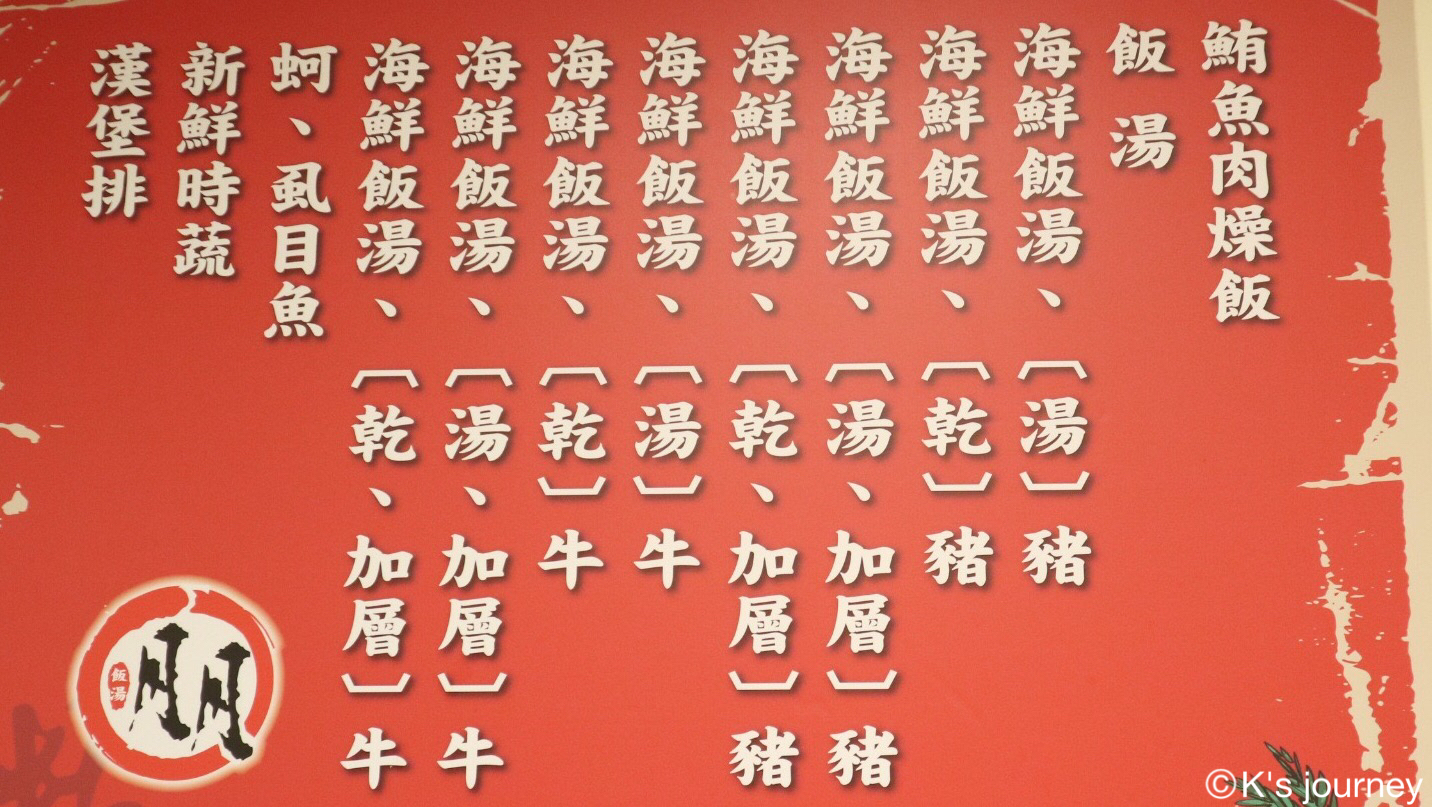 鮪魚肉燥飯
飯湯
海鮮飯湯、〔湯〕豬
海鮮飯湯、〔乾〕豬
海鮮飯湯、〔湯、加層〕豬
海鮮飯湯、〔乾、加層〕豬
海鮮飯湯、〔湯〕牛
海鮮飯湯、〔乾〕牛
海鮮飯湯、〔湯、加層〕牛
海鮮飯湯、〔乾、加層〕牛
蚵、虱目魚
新鮮時蔬
漢堡排
朋
飯湯
©K's journey